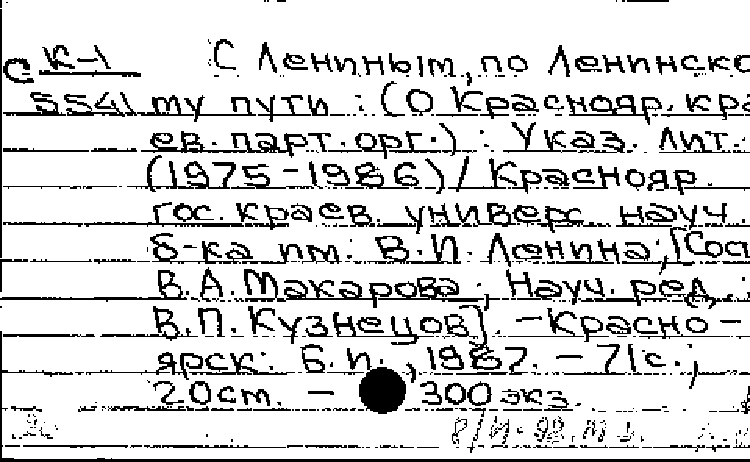 С К-1 С Лениным, по Ленинско
5541 му пути : (О Краснояр. кра
ев. парт. орг.) : Указ. лит.
(1975-1986) / Краснояр.
гос. краев. универс. науч.
б-ка им. В.И. Ленина; [Сос
В.А. Макарова ; Науч. ред.
В.П. Кузнецов]. - Красно-
ярск : Б.и., 1987. - 71с.;
20см. - 300 экз.